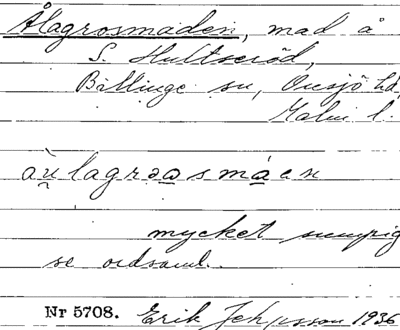 Ålagrosmaden, mad å
S. Hultseröd,
Billinge sn, Onsjö hd,
Malm. l.
mycket sumpig
se ordsaml.
Nr 5708. Erik 1936